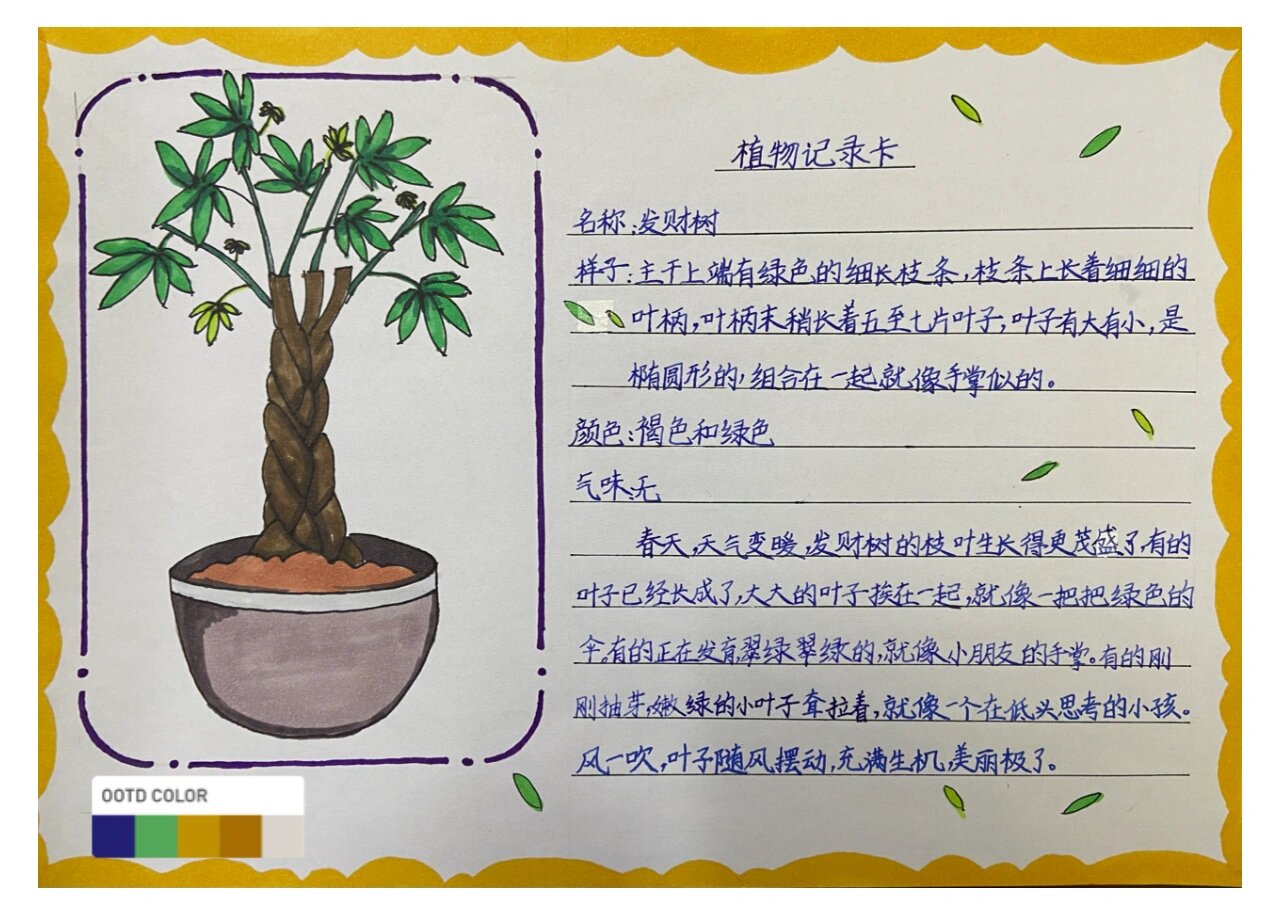 植物记录卡
名称:发财树
样子:主干上端有绿色的细长枝条,枝条上长着细细的
叶柄,叶柄末稍长着五至七片叶子,叶子有大有小,是
椭圆形的,组合在一起就像手掌似的。
颜色:褐色和绿色
气味:无
春天,天气变暖,发财树的枝叶生长得更茂盛了,有的
叶子已经长成了,大大的叶子挨在一起,就像一把把绿色的
伞。有的正在发育,翠绿翠绿的,就像小朋友的手掌。有的刚
刚抽芽,嫩绿的小叶子耷拉着,就像一个在低头思考的小孩。
风一吹,叶子随风摆动,充满生机,美丽极了。
OOTD COLOR